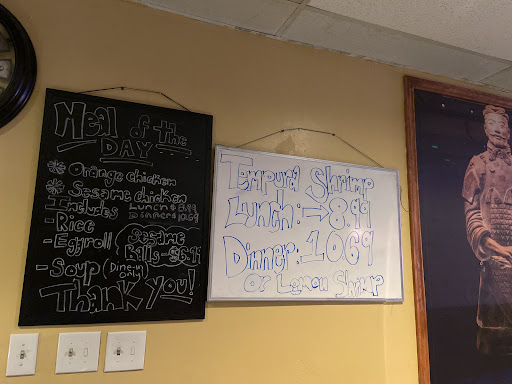 Meal of the
DAY
Orange chicken
Sesame chicken
Includes
Lunch
Dinner 10.69
- Rice
- Eggroll
- Soup (Dine in only)
Sesame
Balls
Thank you!
Tempura Shrimp
Lunch: → 8.99
Dinner: 10 69
or Lemon Shrimp